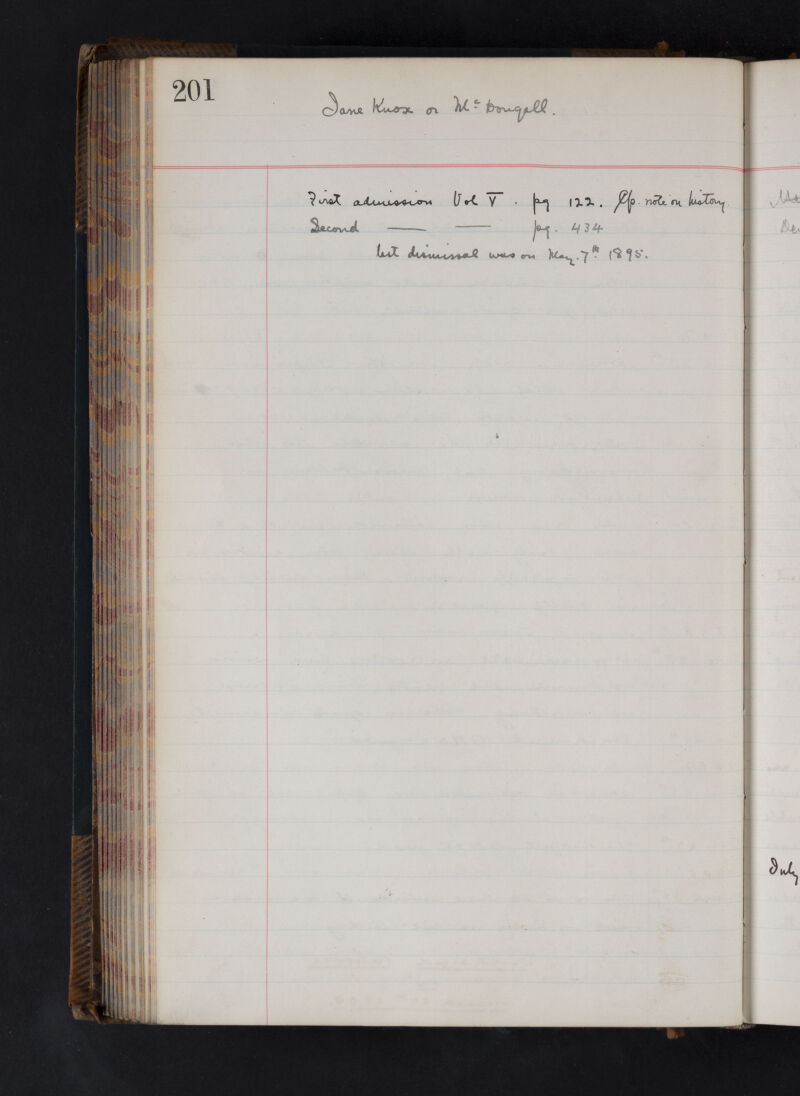 201
Jane Knox or Mc Dougall.
First admission Vol V. pg 122. Cp. note on history.
Second — — pg. 434
last dismissal was on May. 7th 1895.
July